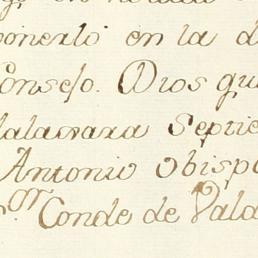 ponerlo en la d
Consejo. Dios gu
Calatrava Septie
Antonio obispo
or Conde de Vald